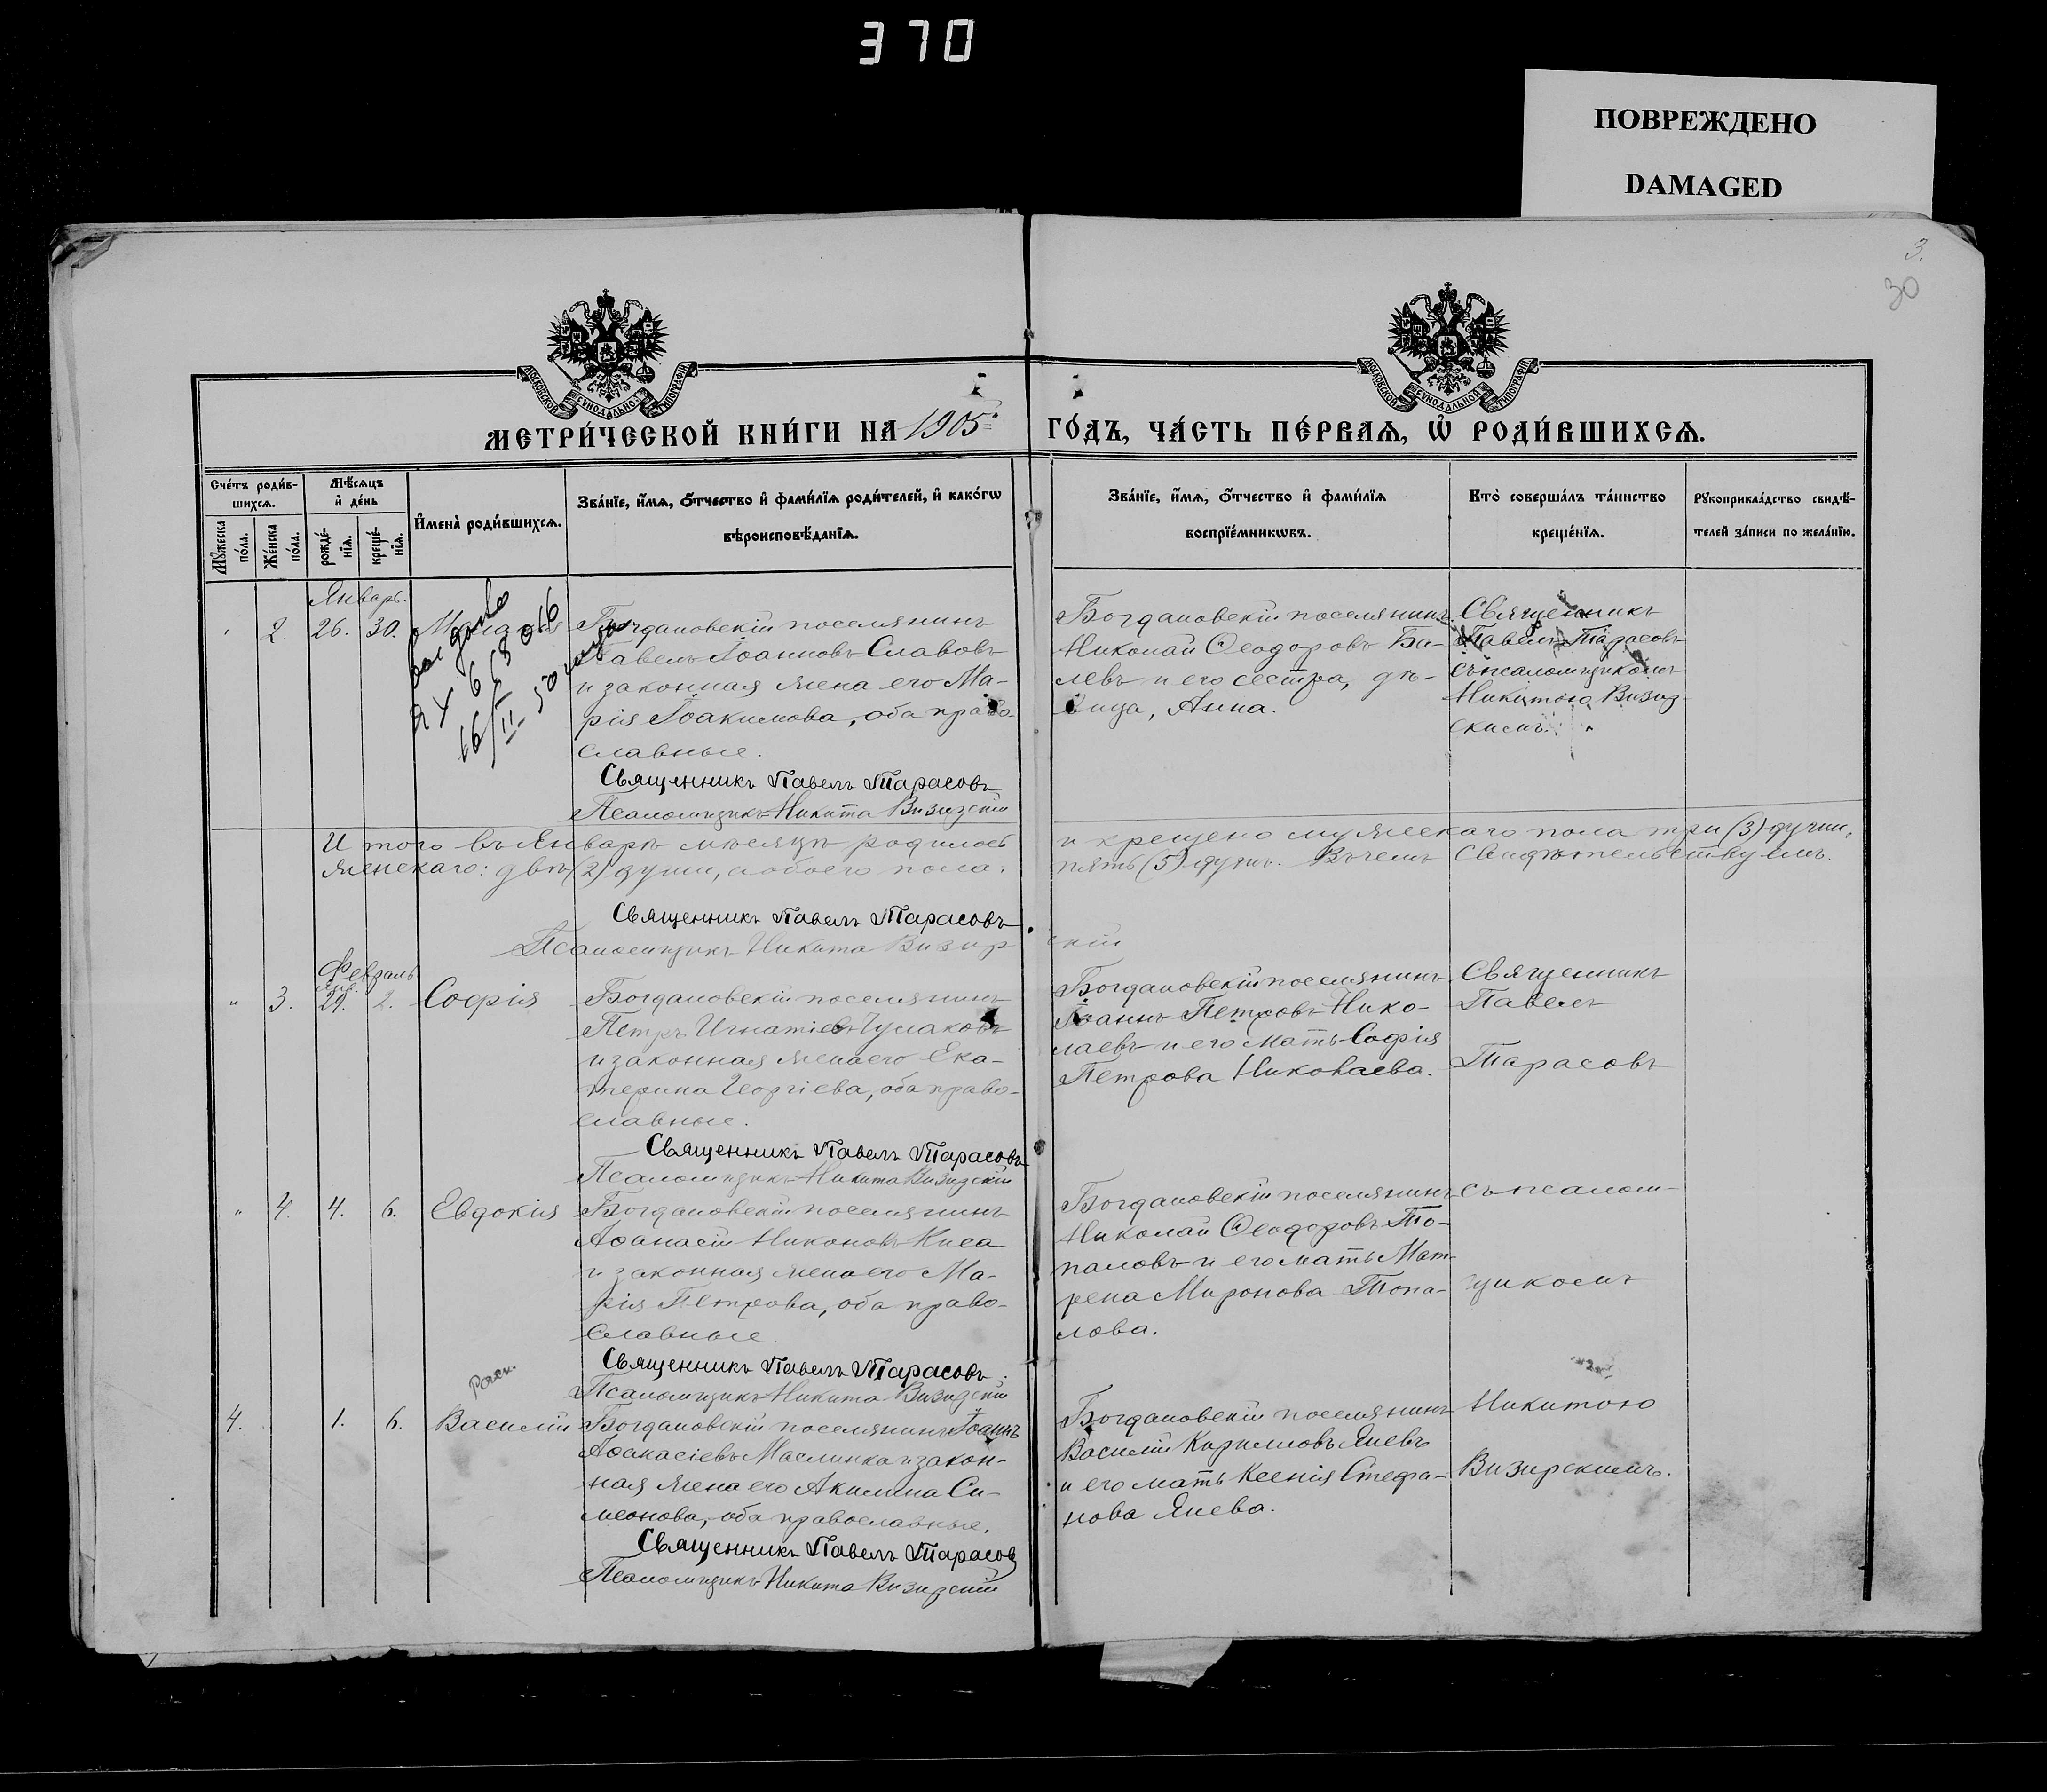 370
ПОВРЕЖДЕНО
DAMAGED
3.
30
МОСКОВСКОЙ СУНОДАЛЬНОЙ ТИПОГРАФІИ
МОСКОВСКОЙ СУНОДАЛЬНОЙ ТИПОГРАФІИ
МЕТРИ́ЧЕСКОЙ КНИ́ГИ НА 1905 ГО́ДЪ, ЧА́СТЬ ПЕ́РВАѦ, Ѡ҆ РОДИ́ВШИХСѦ.
Сче́тъ роди́в-
шихсѧ.
Мꙋ́жеска по́ла.
Же́нска по́ла.
Мѣ́сѧцъ
и҆ де́нь
рожде́-
нїѧ.
креще́-
нїѧ.
И҆мена̀ роди́вшихсѧ.
Зва́нїе, и҆́мѧ, ѻ҆́тчество и҆ фами́лїѧ роди́телей, и҆ како́гѡ
вѣроисповѣ́данїѧ.
Зва́нїе, и҆́мѧ, ѻ҆́тчество и҆ фами́лїѧ
воспрїе́мникѡвъ.
Кто̀ соверша́лъ та́инство
креще́нїѧ.
Рꙋкоприкла́дство свидѣ́-
телей за́писи по жела́нїю.
Январь.
2. 26. 30.
Богдановскій поселянинъ
Павелъ Іоанновъ Славовъ
и законная жена его Ма-
рія Іоакимова, оба право-
славные.
Священникъ Павелъ Тарасовъ
Псаломщикъ Никита Визирскій
Богдановскій поселянинъ
Николай Ѳеодоровъ Ба-
левъ и его сестра, дѣ-
вица, Анна.
Священникъ
Павелъ Тарасовъ
съ псаломщикомъ
Никитою Визир-
скимъ.
И того въ Январѣ мѣсяцѣ родилось и крещено мужескаго пола три (3) души,
женскаго: двѣ (2) души, а обоего пола: пять (5) душъ. Въ чемъ свидѣтельствуемъ.
Священникъ Павелъ Тарасовъ
Псаломщикъ Никита Визирскій
Февраль
Янв.
" 3. 29. 2. Софія
Богдановскій поселянинъ
Петръ Игнатіевъ Чумаковъ
и законная жена его Ека-
терина Георгіева, оба право-
славные.
Священникъ Павелъ Тарасовъ
Псаломщикъ Никита Визирскій
Богдановскій поселянинъ
Іоаннъ Петровъ Нико-
лаевъ и его мать Софія
Петрова Николаева.
Священникъ
Павелъ
Тарасовъ
" 4. 4. 6. Евдокія
Богдановскій поселянинъ
Аѳанасій Никоновъ Киса
и законная жена его Ма-
рія Петрова, оба право-
славные.
Священникъ Павелъ Тарасовъ.
Псаломщикъ Никита Визирскій
Богдановскій поселянинъ
Николай Ѳеодоровъ То-
паловъ и его мать Мат-
рена Миронова Топа-
лова.
съ псалом-
щикомъ
4. 1. 6. Василій
Богдановскій поселянинъ Іоаннъ
Аѳанасіевъ Маслинка и закон-
ная жена его Акилина Си-
меонова, оба православные.
Священникъ Павелъ Тарасов
Псаломщикъ Никита Визирскій
Богдановскій поселянинъ
Василій Кирилловъ Яневъ
и его мать Ксенія Стефа-
нова Янева.
Никитою
Визирскимъ.